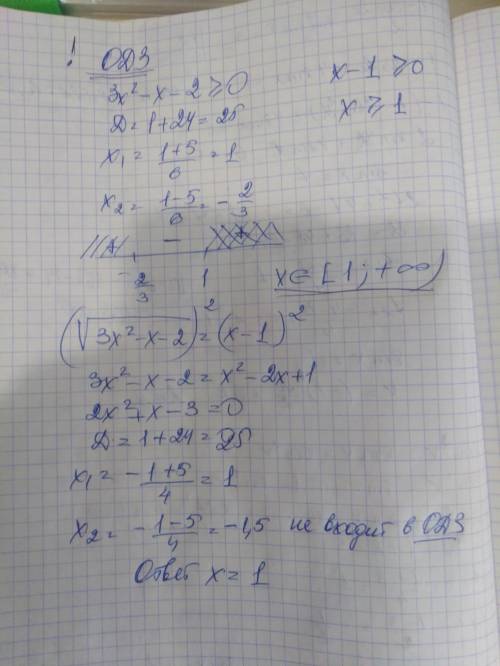 ! ОДЗ
3x² - x - 2 ≥ 0
x - 1 ≥ 0
Д = 1 + 24 = 25
x ≥ 1
x₁ = (1+5)/6 = 1
x₂ = (1-5)/6 = - 2/3
+ - +
- 2/3 1
x ∈ [1; +∞)
(√(3x² - x - 2))² = (x - 1)²
3x² - x - 2 = x² - 2x + 1
2x² + x - 3 = 0
Д = 1 + 24 = 25
x₁ = (-1+5)/4 = 1
x₂ = (-1-5)/4 = -1,5 не входит в ОДЗ
Ответ x = 1